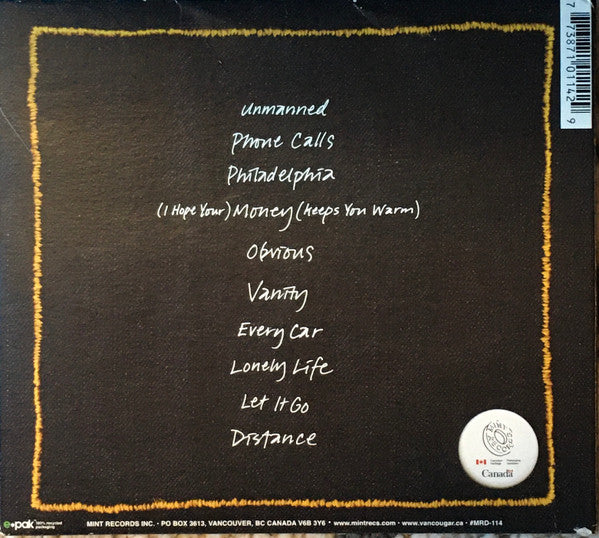 7 73871 01142 9
Unmanned
Phone Calls
Philadelphia
(I Hope Your) Money (Keeps You Warm)
Obvious
Vanity
Every Car
Lonely Life
Let It Go
Distance
MINT RECORDS
Canadian Heritage
Patrimoine canadien
Canada
e•pak 100% recycled packaging
MINT RECORDS INC. • PO BOX 3613, VANCOUVER, BC CANADA V6B 3Y6 • www.mintrecs.com • www.vancougar.ca • #MRD-114